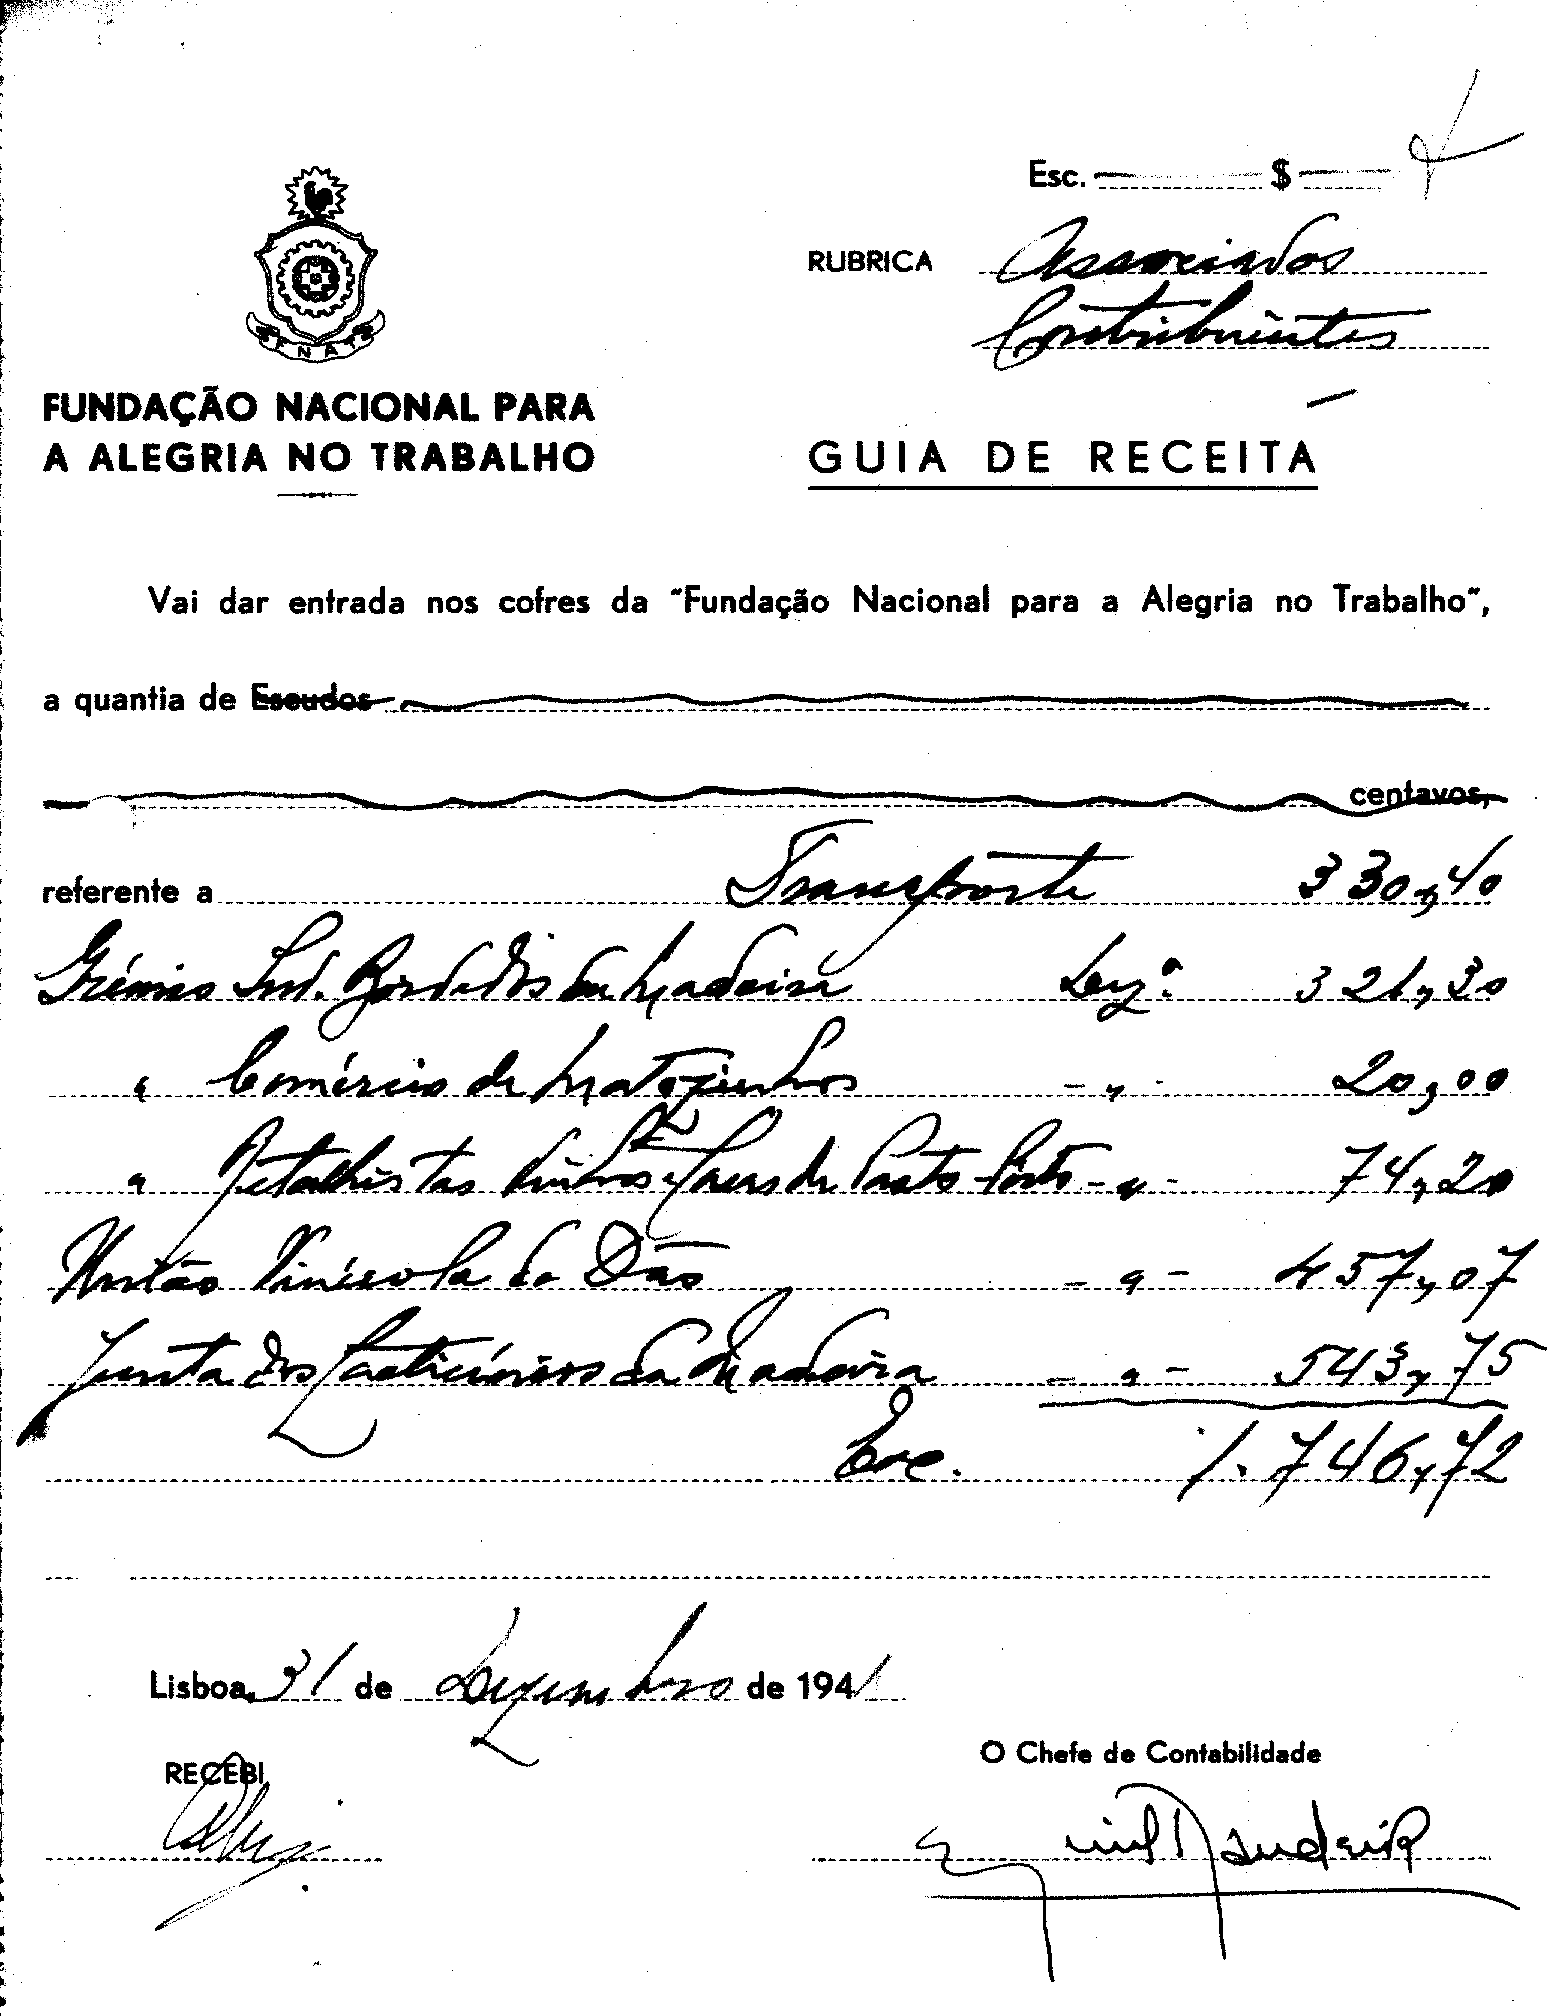 Esc. $
RUBRICA Associados
Contribuintes
FENAT
FUNDAÇÃO NACIONAL PARA
A ALEGRIA NO TRABALHO
GUIA DE RECEITA
Vai dar entrada nos cofres da "Fundação Nacional para a Alegria no Trabalho",
a quantia de Escudos
centavos,
referente a Transporte 330,40
Grémio Ind. Bordados da Madeira Dezº 321,30
" Comércio de Matozinhos - " - 20,00
" Retalhistas Vinhos e Casas de Pasto - Porto - " - 74,20
União Vinícola do Dão - " - 457,07
Junta dos Lacticínios da Madeira - " - 543,75
Esc. 1.746,72
Lisboa, 31 de Dezembro de 1941
RECEBI
O Chefe de Contabilidade